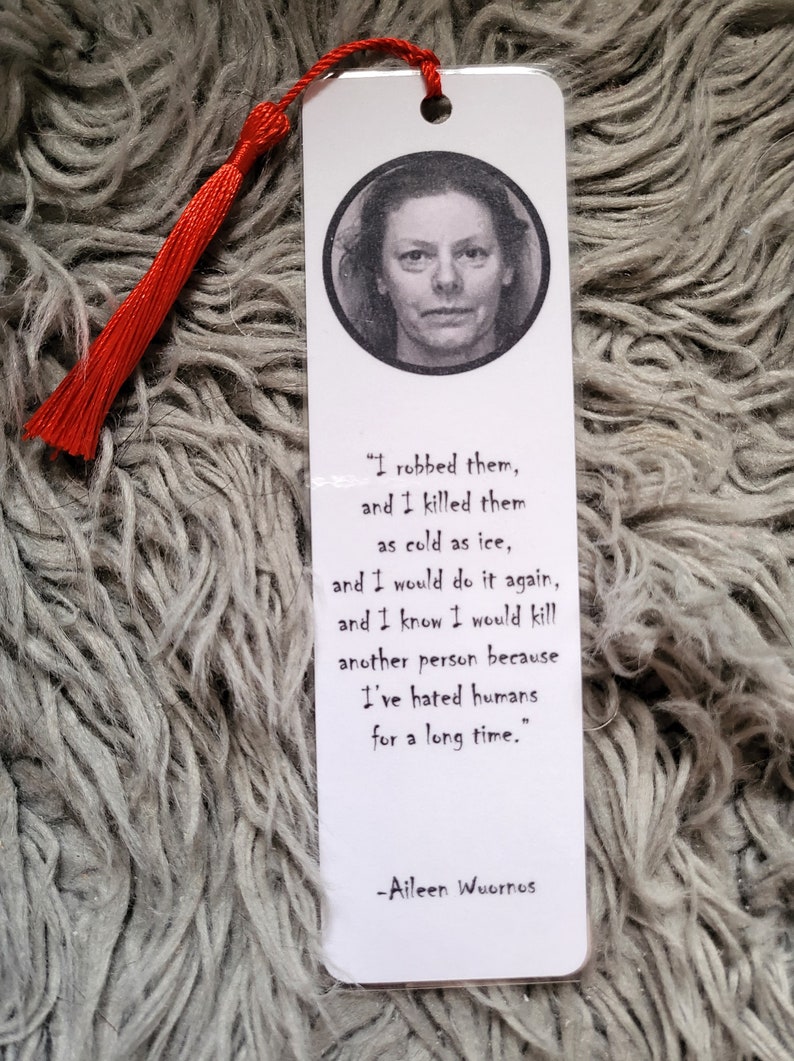 “I robbed them,
and I killed them
as cold as ice,
and I would do it again,
and I know I would kill
another person because
I've hated humans
for a long time.”
-Aileen Wuornos